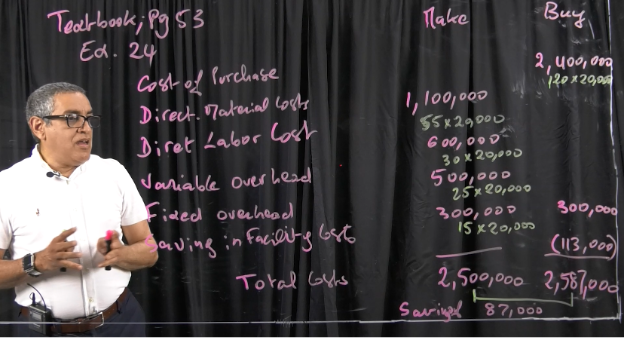 Textbook, Pg 53
Ed. 24
Make Buy
Cost of Purchase 2,400,000
120 x 20,000
Direct Material Costs 1,100,000
55 x 20,000
Diret Labor Cost 600,000
30 x 20,000
Variable overhead 500,000
25 x 20,000
Fixed overhead 300,000 300,000
15 x 20,000
Saving in Facility Costs (113,000)
Total Costs 2,500,000 2,587,000
Savings 87,000